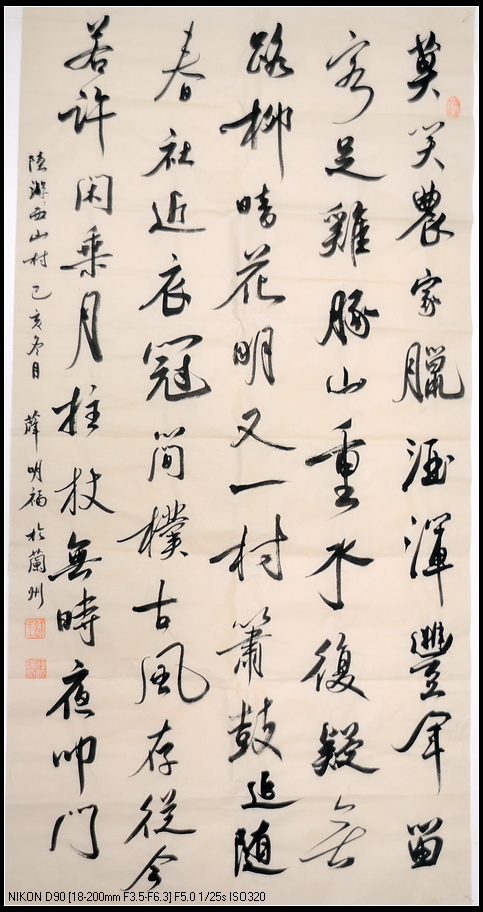 莫笑農家臘酒渾豐年留
客足雞豚山重水復疑無
路柳暗花明又一村簫鼓追随
春社近衣冠简樸古風存從今
若許闲乘月拄杖無時夜叩門
陸游西山村己亥冬月 薛明福於蘭州
NIKON D90 [18-200mm F3.5-F6.3] F5.0 1/25s ISO320